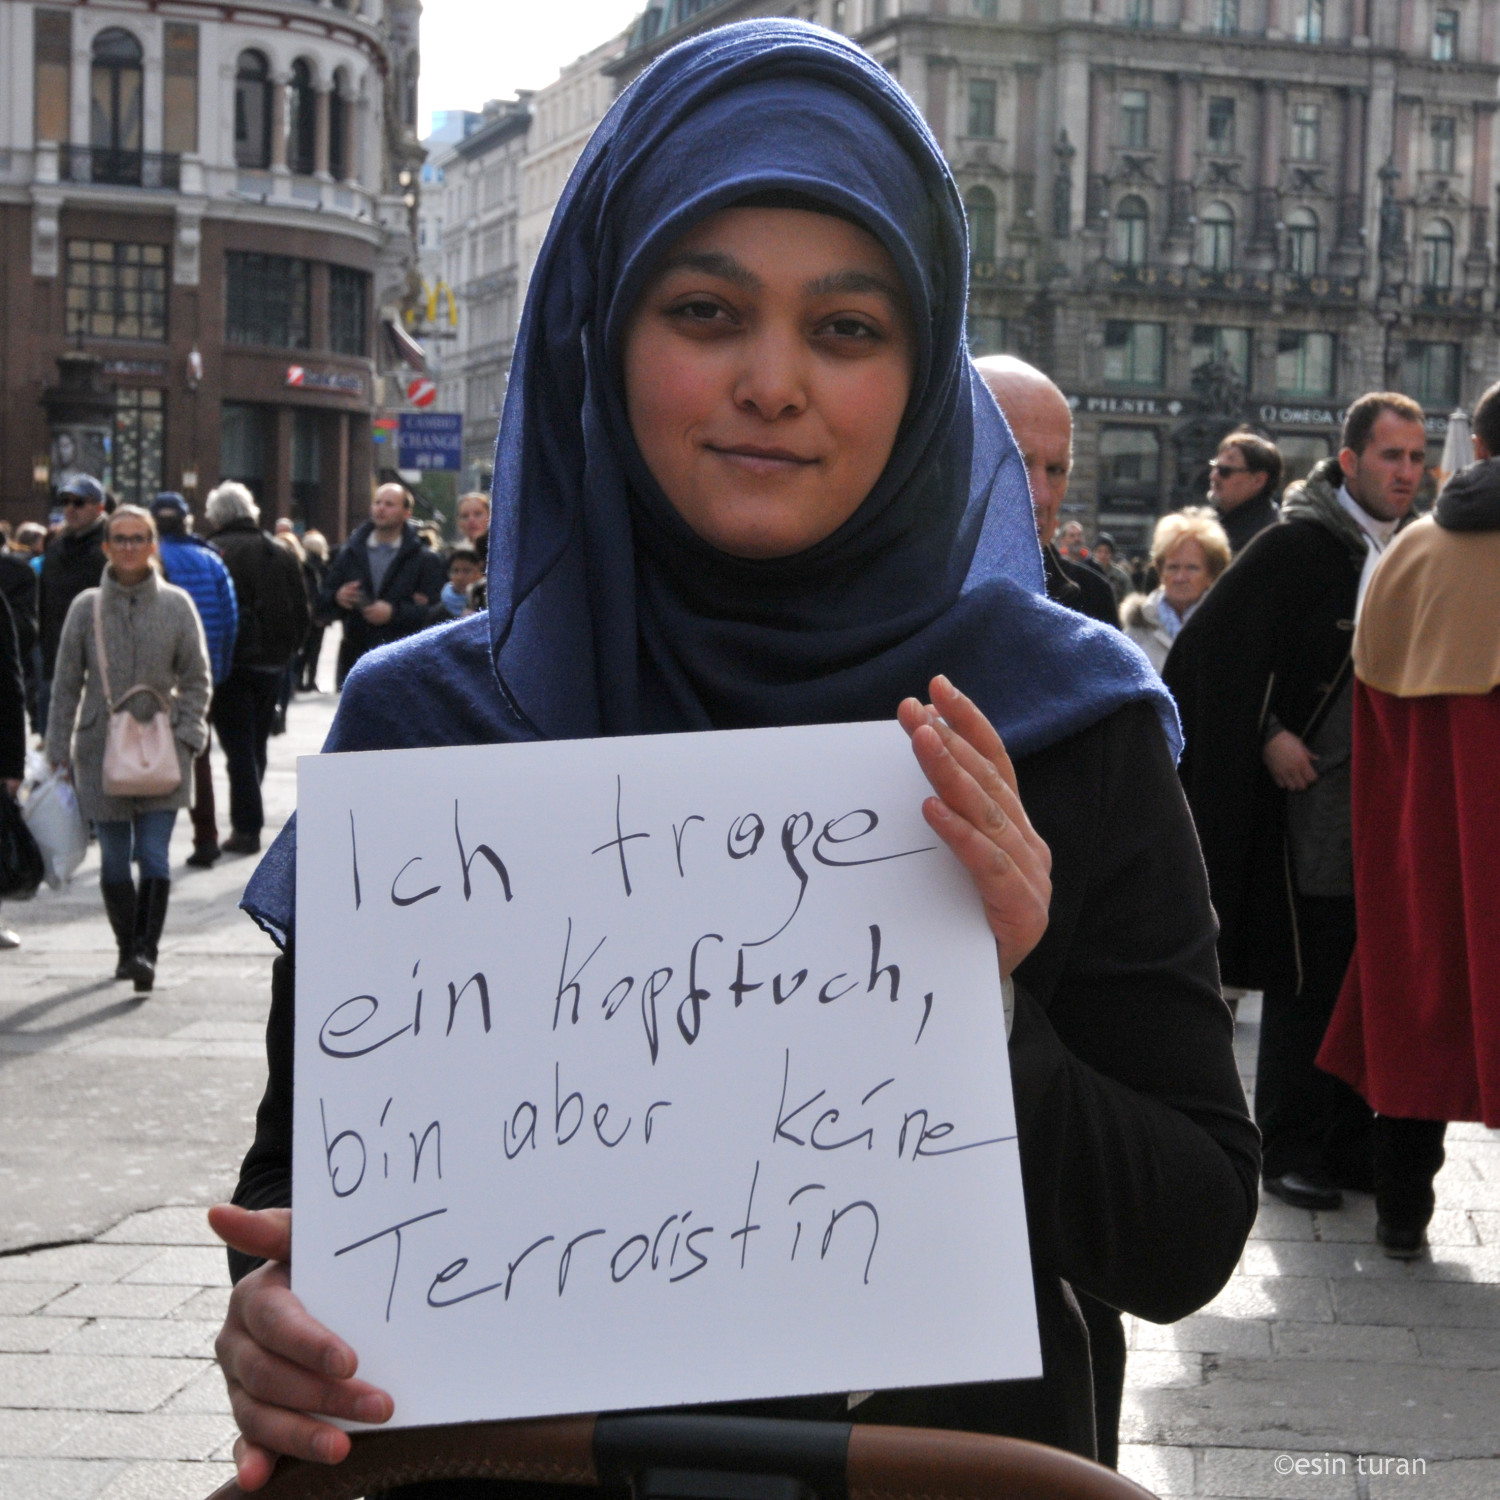 Ich trage
ein Kopftuch,
bin aber keine
Terroristin
CAMBIO
CHANGE
PILNTL
OMEGA
©esin turan